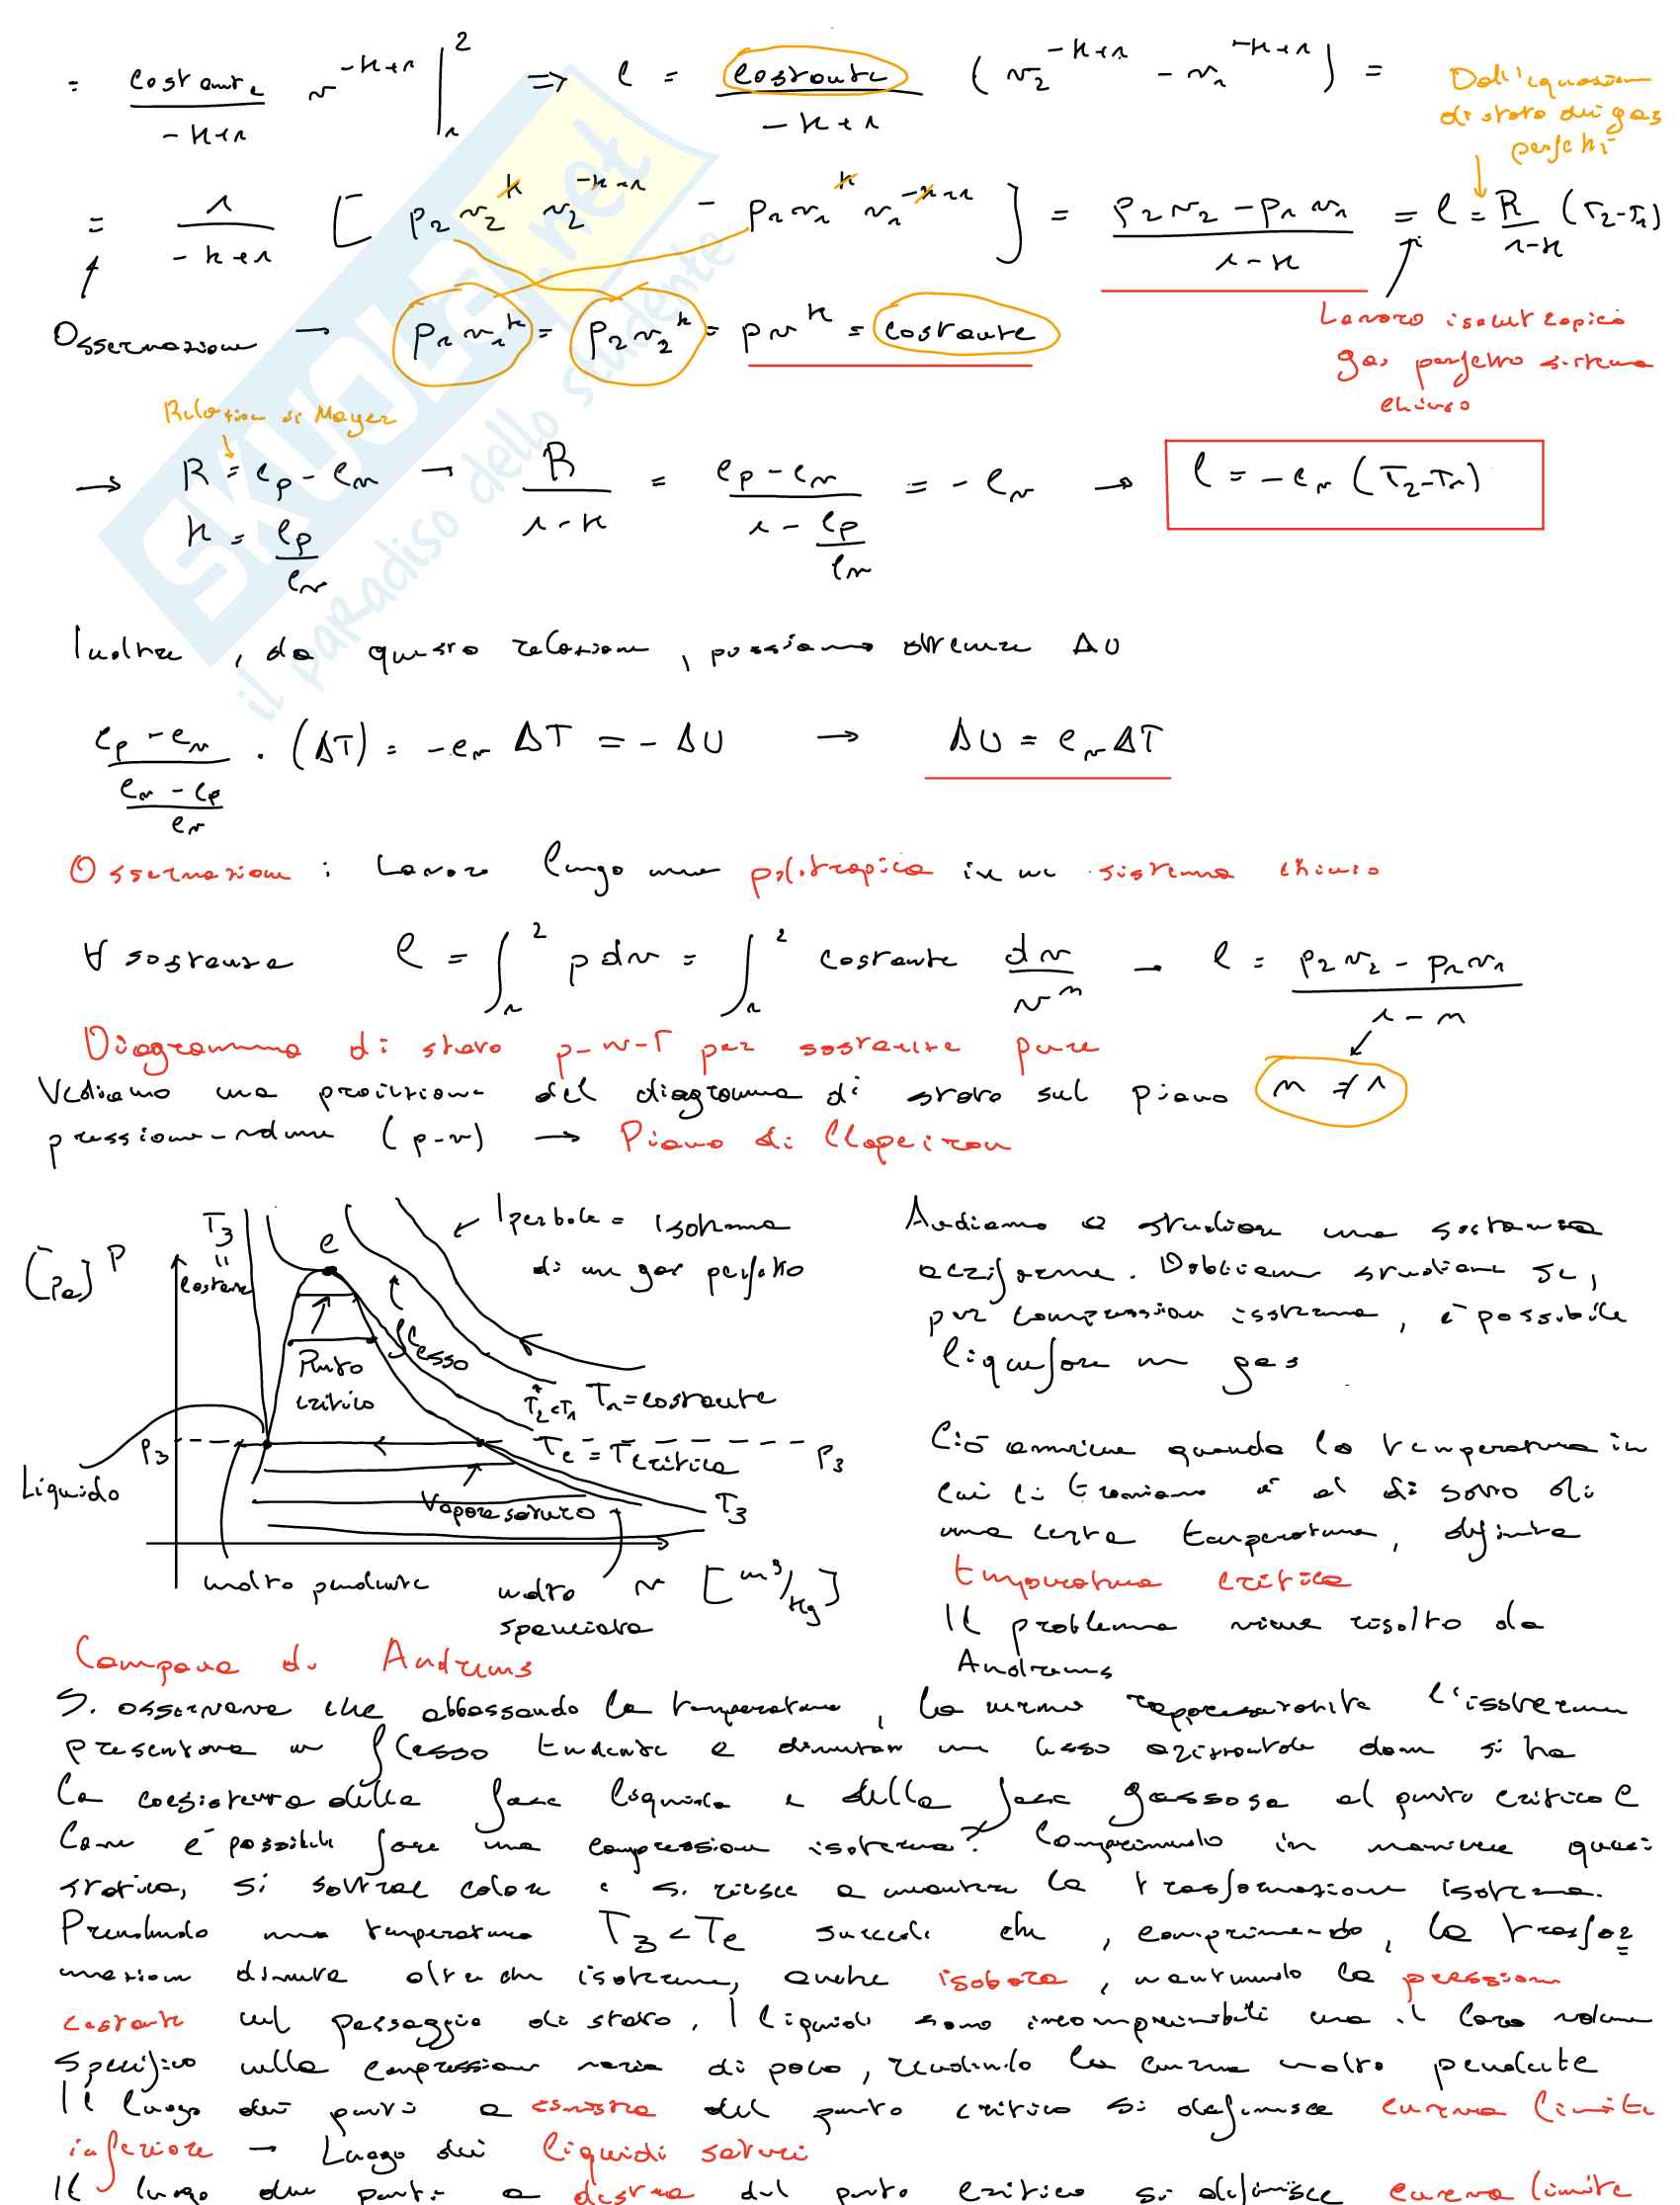 = costante/(-k+1) v^(-k+1) |₁² ⇒ l = costante/(-k+1) (v₂^(-k+1) - v₁^(-k+1)) =
Dall'equazione
di stato dei gas
perfetti
= 1/(-k+1) [p₂v₂^k v₂^(-k+1) - p₁v₁^k v₁^(-k+1)] = (p₂v₂ - p₁v₁)/(1-k) = l = R/(1-k) (T₂-T₁)
Osservazione → p₁v₁^k = p₂v₂^k = pv^k = costante
Lavoro isoentropico
gas perfetto sistema
chiuso
Relazione di Mayer
→ R = cp - cv → R/(1-k) = (cp - cv)/(1 - cp/cv) = - cv → l = -cv (T₂-T₁)
k = cp/cv
Inoltre, da questa relazione, possiamo ottenere ΔU
(cp - cv)/((cv - cp)/cv) · (ΔT) = -cv ΔT = - ΔU → ΔU = cv ΔT
Osservazione: Lavoro lungo una politropica in un sistema chiuso
∀ sostanza l = ∫₁² p dv = ∫₁² costante dv/v^n → l = (p₂v₂ - p₁v₁)/(1-n)
Diagramma di stato p-v-T per sostanze pure
Vediamo una proiezione del diagramma di stato sul piano n ≠ 1
pressione-volume (p-v) → Piano di Clapeiron
[Pa] P
T₃ = costante
c
Iperbole = Isoterma
di un gas perfetto
Flesso
Punto
critico
T₂<T₁ T₁ = costante
Tc = Tcritica
P₃
P₃
Liquido
Vapore saturo
T₃
molto pendente
molto
spanciata
v [m³/kg]
Andiamo a studiare una sostanza
aeriforme. Dobbiamo studiare se,
per compressione isoterma, è possibile
liquefare un gas
Ciò avviene quando la temperatura in
cui ci troviamo è al di sotto di
una certa temperatura, definita
temperatura critica
Il problema viene risolto da
Andrews
Campana di Andrews
Si osservava che abbassando la temperatura, la curva rappresentante l'isoterma
presentava un flesso tendente a diventare un asso orizzontale dove si ha
la coesistenza della fase liquida e della fase gassosa al punto critico C
Come è possibile fare una compressione isoterma? Comprimendo in maniera quasi
statica, si sottrae calore e si riesce a mantenere la trasformazione isoterma.
Prendendo una temperatura T₃<Tc succede che, comprimendo, la trasfor
mazione diventa oltre che isoterma, anche isobara, mantenendo la pressione
costante nel passaggio di stato. I liquidi sono incomprimibili ma il loro volume
specifico nella compressione varia di poco, rendendo la curva molto pendente
Il luogo dei punti a sinistra del punto critico si definisce curva limite
inferiore → Luogo dei liquidi saturi
Il luogo dei punti a destra del punto critico si definisce curva limite
SKUOLA.net
il paradiso dello studente